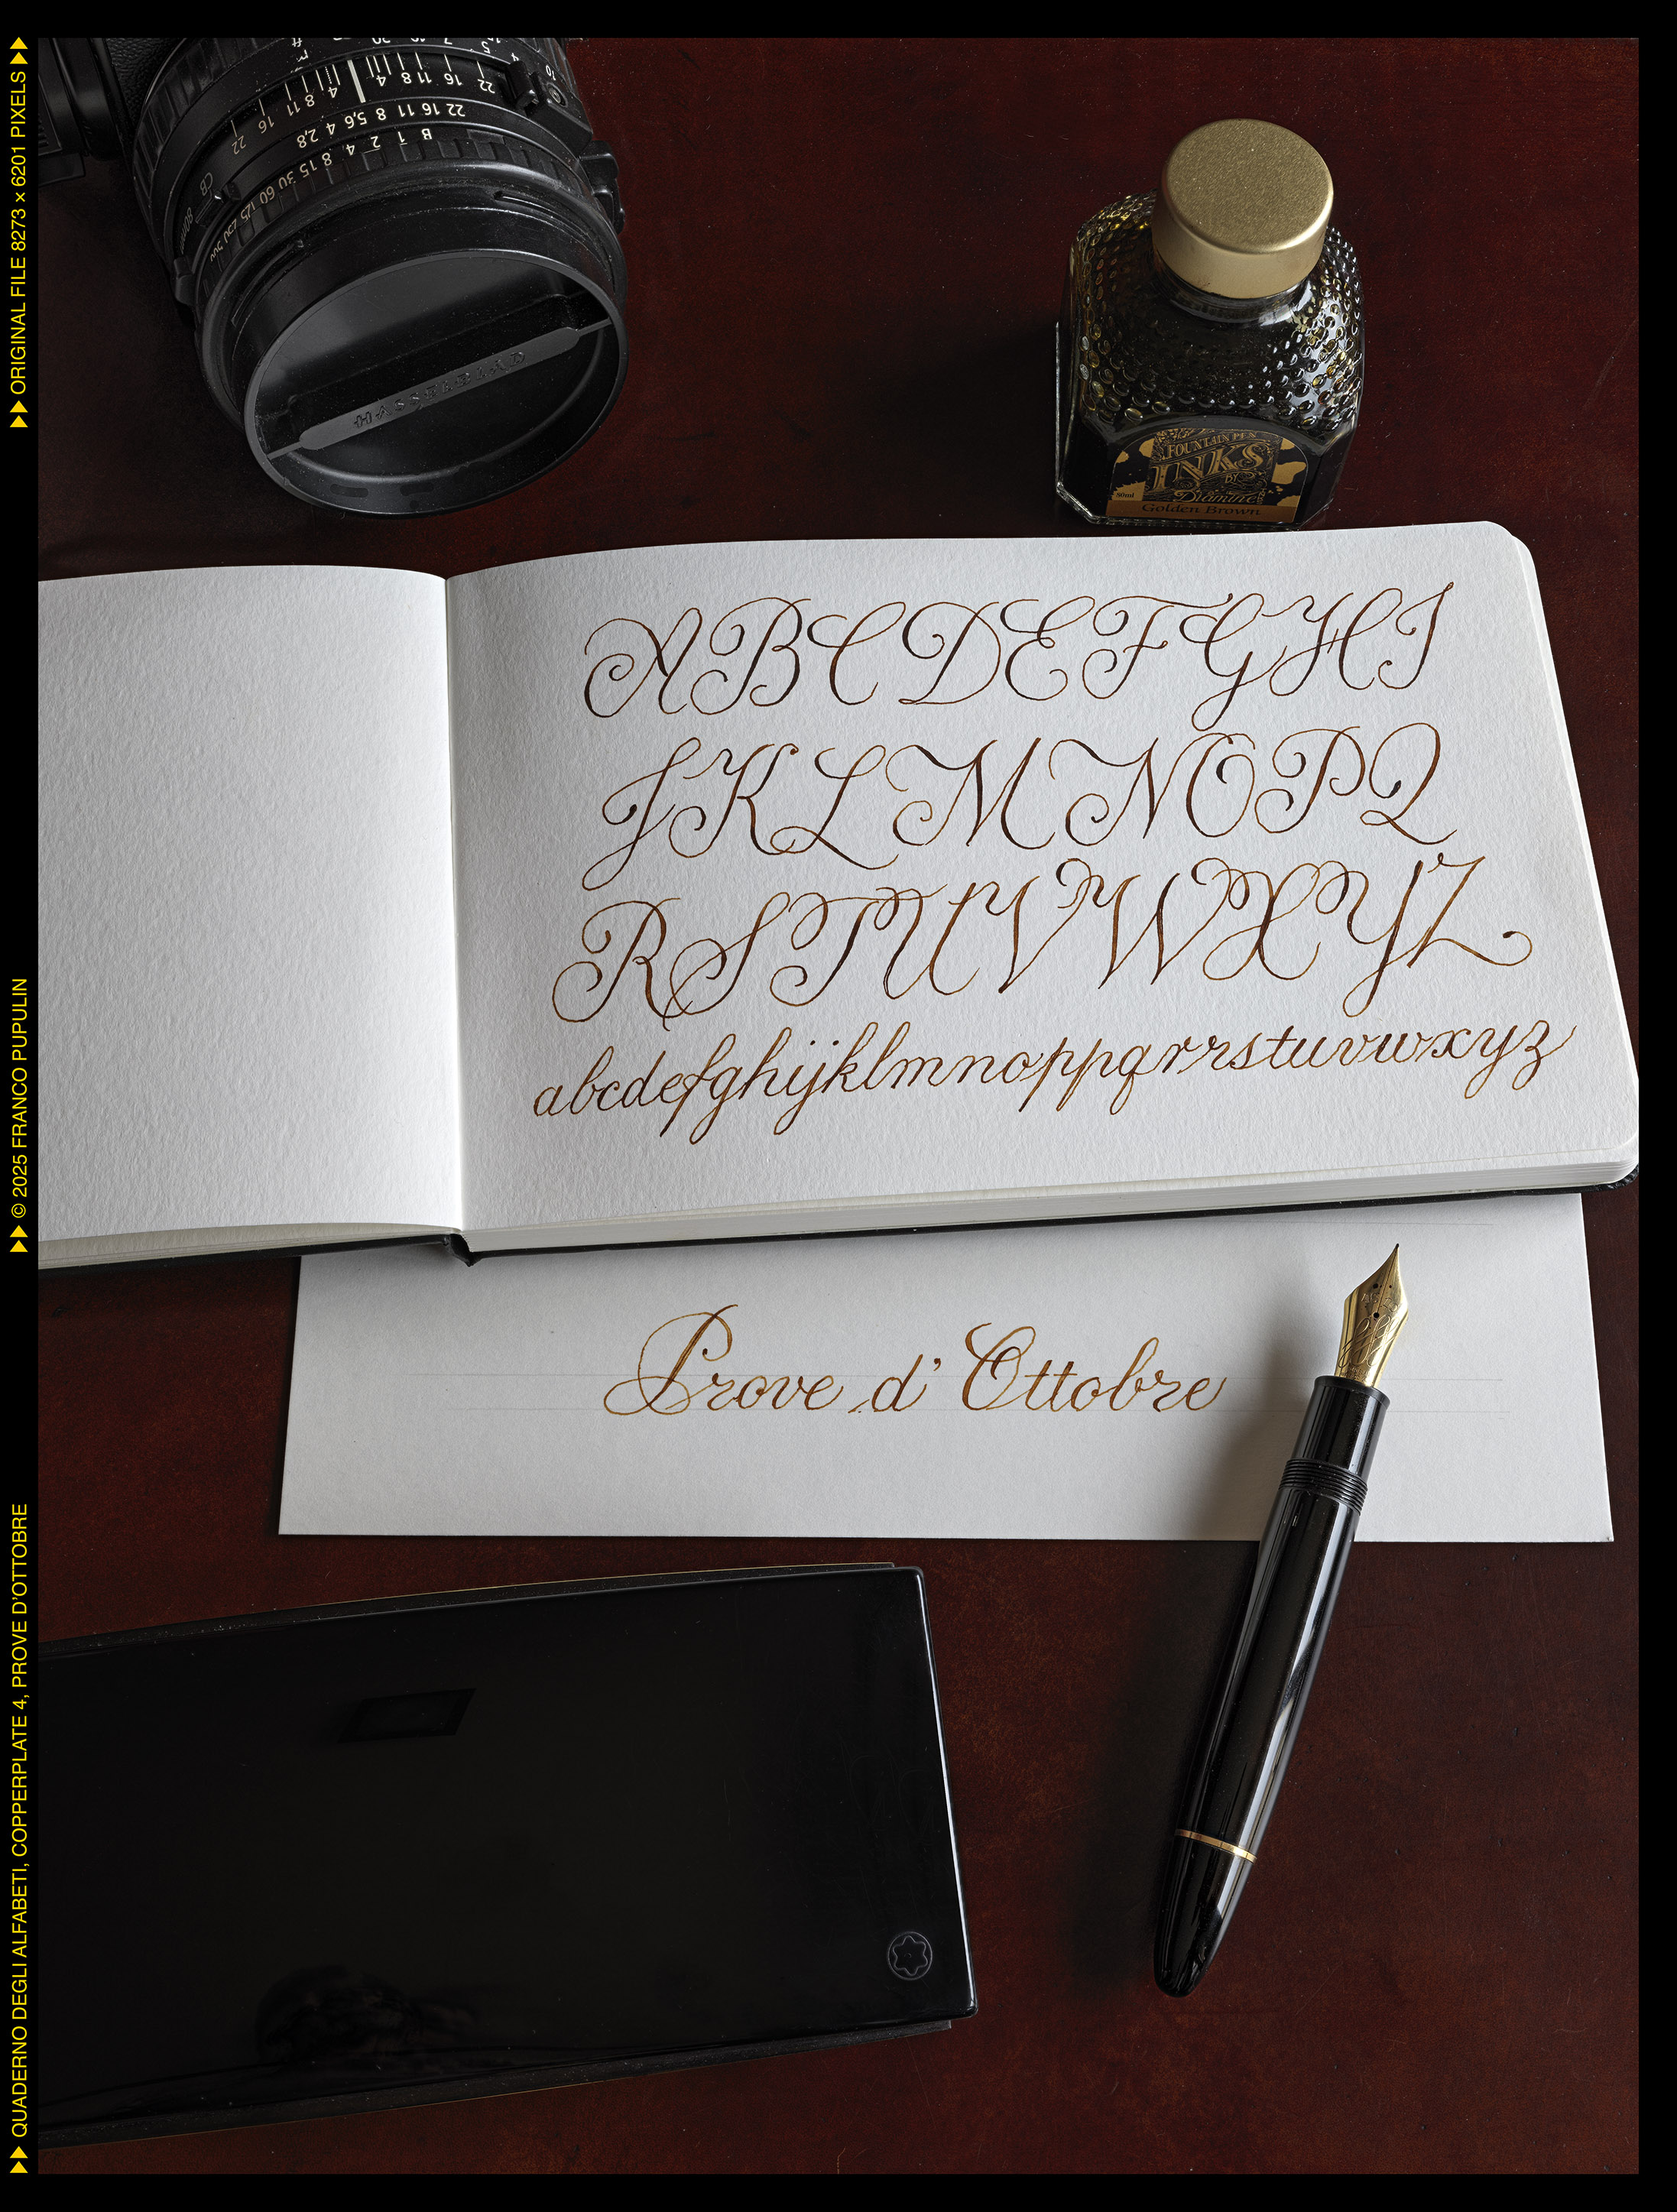 ORIGINAL FILE 8273 × 6201 PIXELS
© 2025 FRANCO PUPULIN
QUADERNO DEGLI ALFABETI, COPPERPLATE 4, PROVE D'OTTOBRE
22 16 11 8 4 4 8 11 16 22
22 16 11 8 5,6 4 2,8
B 1 2 4 8 15 30 60 125
CB
HASSELBLAD
FOUNTAIN PEN
INKS
BY
Diamine
Golden Brown
A B C D E F G H I
J K L M N O P Q
R S T U V W X Y Z
abcdefghijklmnoppqrrstuvwxyz
Prove d'Ottobre